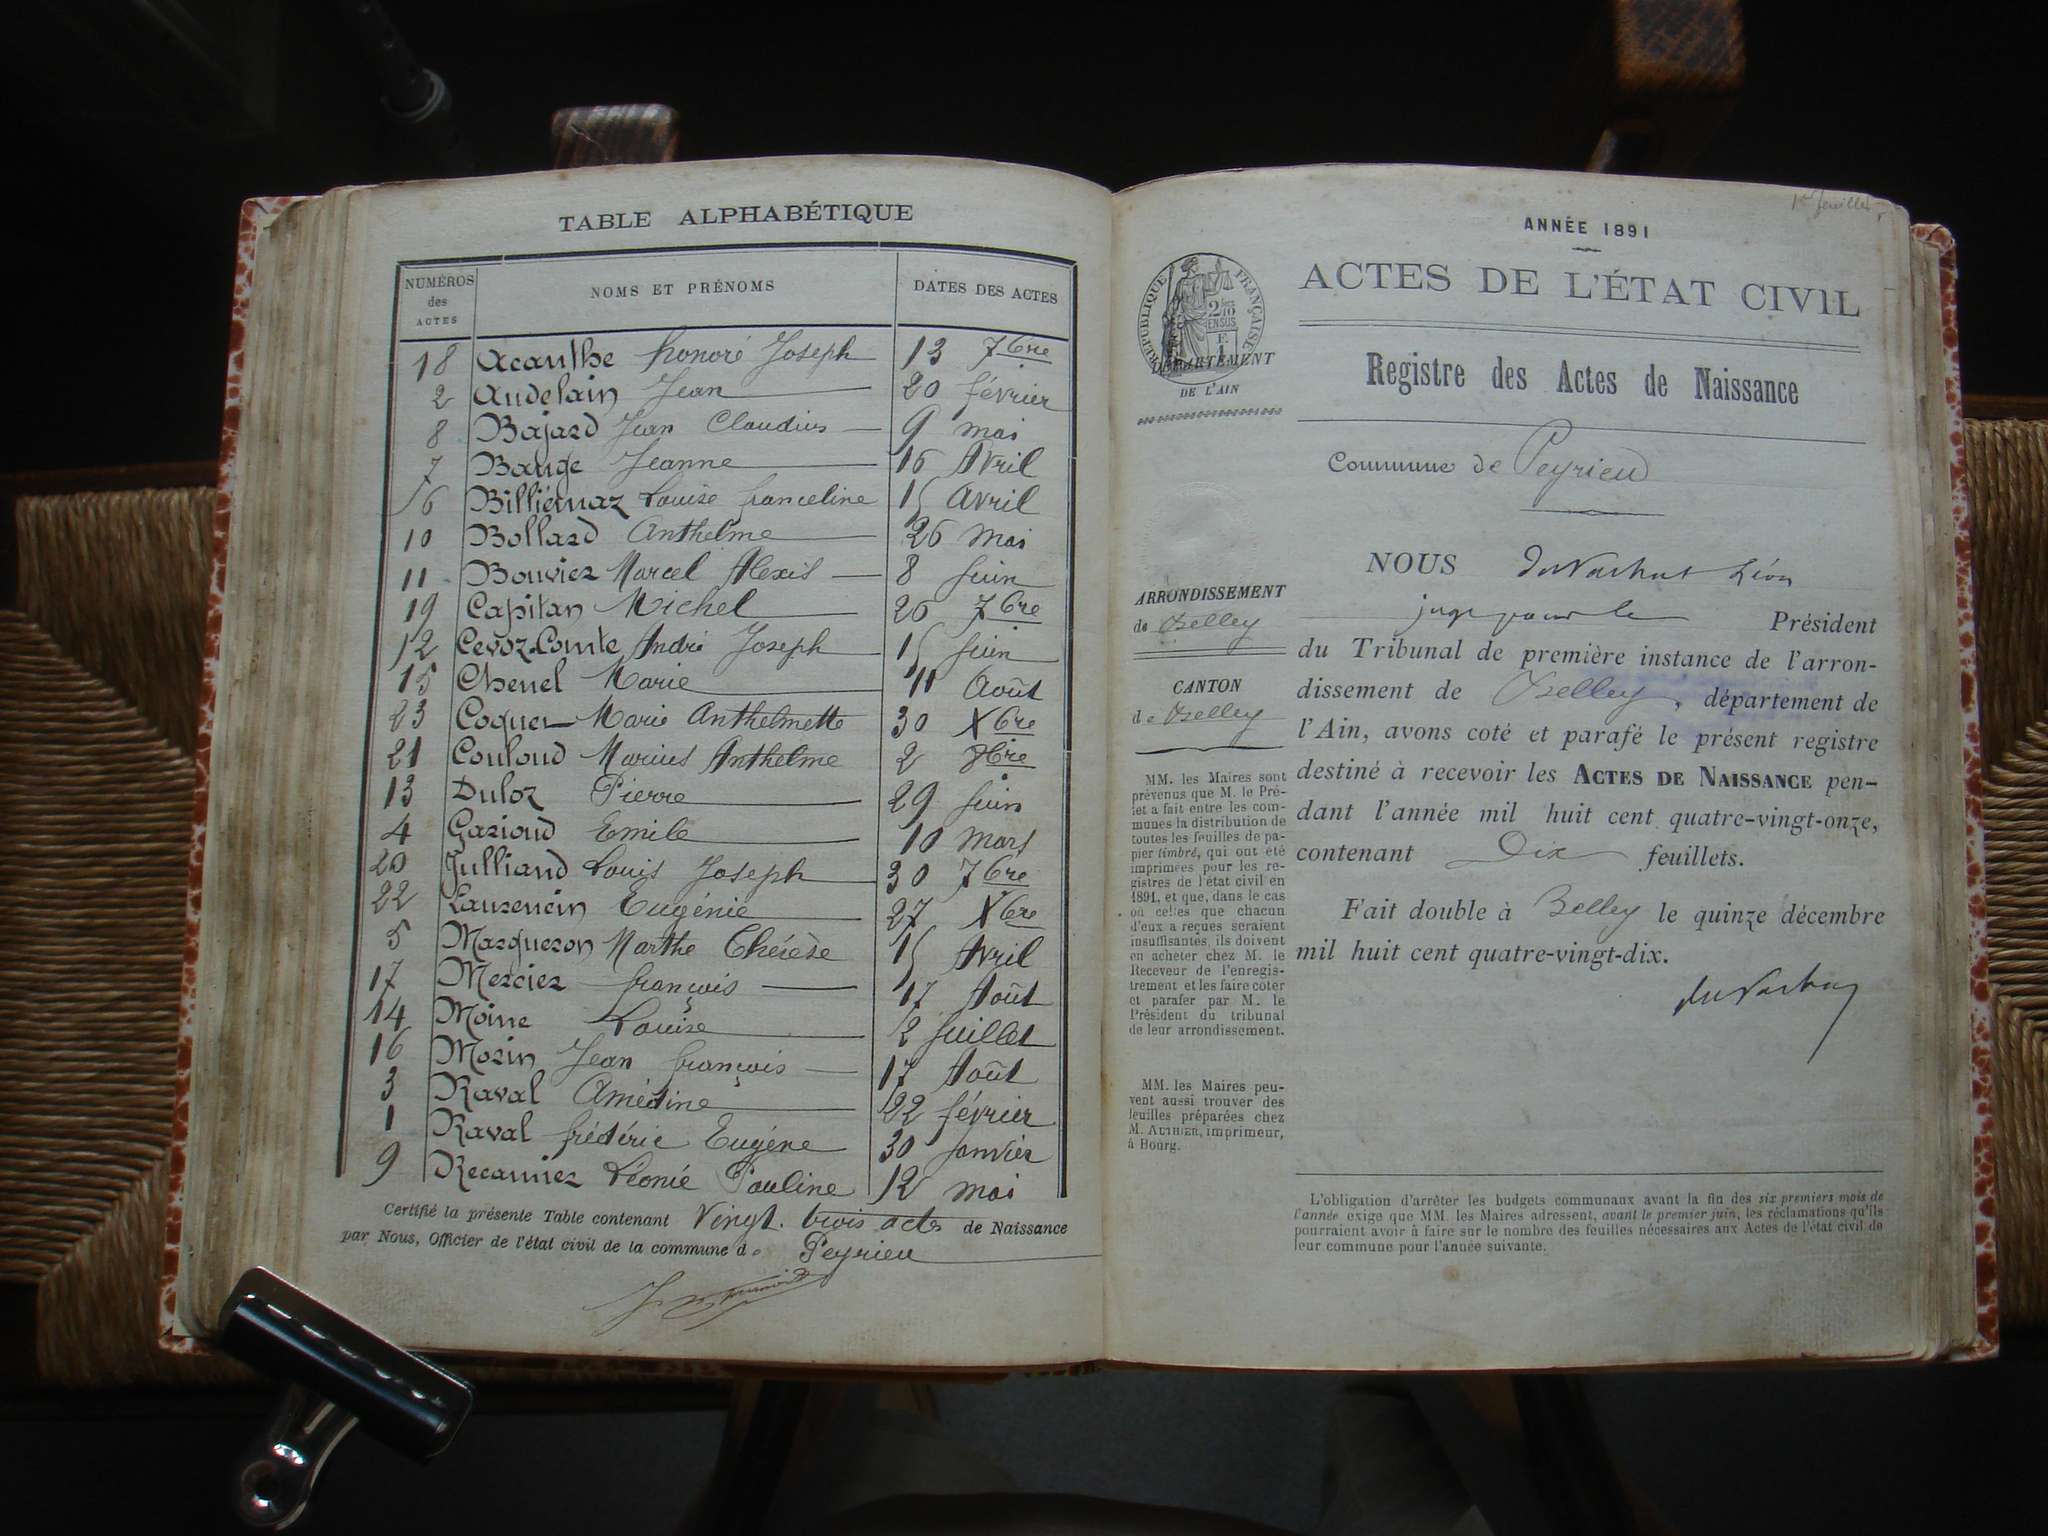 TABLE ALPHABÉTIQUE
NUMÉROS des ACTES NOMS ET PRÉNOMS DATES DES ACTES
18 Acanthe honoré Joseph 13 7bre
2 Audelain Jean 20 février
8 Bajard Jean Claudius 9 mai
7 Bauge Jeanne 16 Avril
6 Billiémaz Louise franceline 15 Avril
10 Bollard Anthelme 26 Mai
11 Bouvier Marcel Alexis 8 Juin
19 Capitan Michel 20 7bre
12 Cevoz-Comte André Joseph 15 Juin
15 Chenel Marie 11 Août
23 Coquet Marie Anthelmette 30 Xbre
21 Couloud Marius Anthelme 2
13 Duloz Pierre 29 Juin
4 Garioud Emile 10 Mars
20 Julliand Louis Joseph 30 7bre
22 Laurencin Eugénie 27 Xbre
5 Marqueron Marthe Thérèse 15 Avril
17 Mercier françois 17 Août
14 Moine Louise 2 Juillet
16 Morin Jean françois 17 Août
3 Raval Amédine 22 février
1 Raval frédéric Eugène 30 Janvier
9 Récamier Léonie Pauline 12 mai
Certifié la présente Table contenant Vingt-trois actes de Naissance
par Nous, Officier de l'état civil de la commune de Peyrieu
1er feuillet
ANNÉE 1891
ACTES DE L'ÉTAT CIVIL
RÉPUBLIQUE FRANÇAISE
DÉPARTEMENT
DE L'AIN
Registre des Actes de Naissance
Commune de Peyrieu
ARRONDISSEMENT
de Belley
CANTON
de Belley
MM. les Maires sont
prévenus que M. le Pré-
fet a fait entre les com-
munes la distribution de
toutes les feuilles de pa-
pier timbré, qui ont été
imprimées pour les re-
gistres de l'état civil en
1891, et que, dans le cas
où celles que chacun
d'eux a reçues seraient
insuffisantes, ils doivent
en acheter chez M. le
Receveur de l'enregis-
trement et les faire coter
et parafer par M. le
Président du tribunal
de leur arrondissement.
MM. les Maires peu-
vent aussi trouver des
feuilles préparées chez
M. AUTHIER, imprimeur,
à Bourg.
NOUS Léon
juge pour le Président
du Tribunal de première instance de l'arron-
dissement de Belley, département de
l'Ain, avons coté et parafé le présent registre
destiné à recevoir les ACTES DE NAISSANCE pen-
dant l'année mil huit cent quatre-vingt-onze,
contenant Dix feuillets.
Fait double à Belley le quinze décembre
mil huit cent quatre-vingt-dix.
L'obligation d'arrêter les budgets communaux avant la fin des six premiers mois de
l'année exige que MM. les Maires adressent, avant le premier juin, les réclamations qu'ils
pourraient avoir à faire sur le nombre des feuilles nécessaires aux Actes de l'état civil de
leur commune pour l'année suivante.